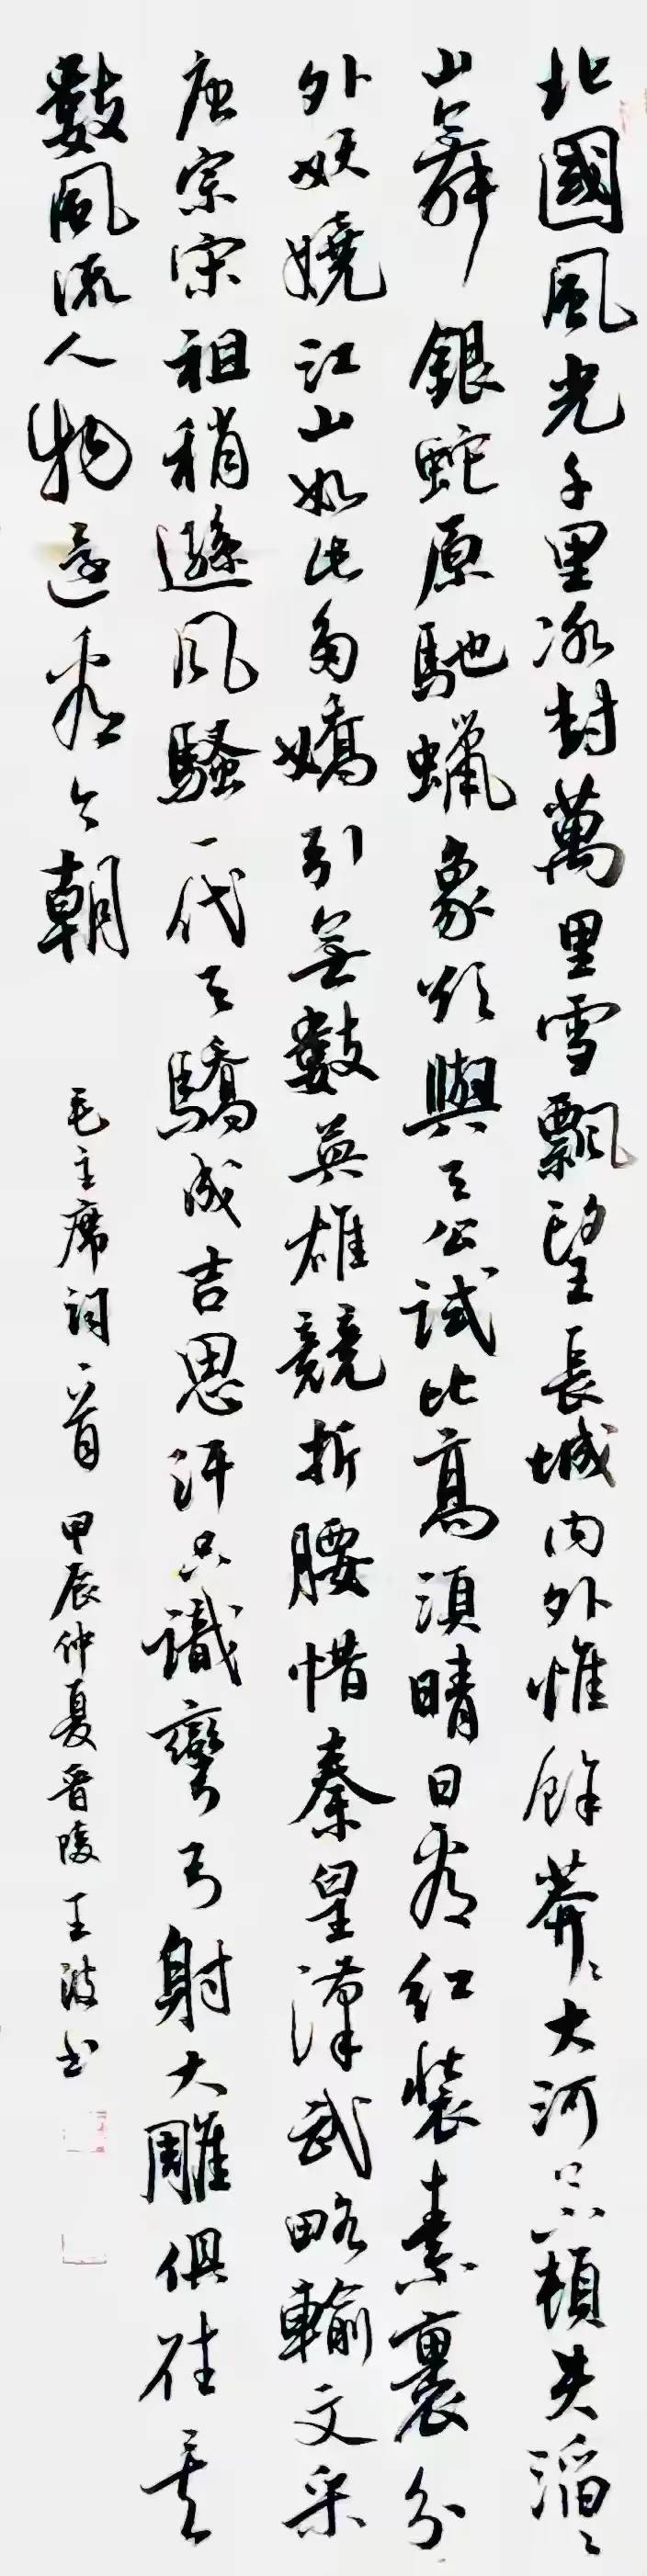 北國風光千里冰封萬里雪飄望長城内外惟餘莽〻大河上下頓失滔〻
山舞銀蛇原馳蠟象欲與天公試比高須晴日看紅裝素裹分
外妖嬈江山如此多嬌引無數英雄競折腰惜秦皇漢武略輸文采
唐宗宋祖稍遜風騷一代天驕成吉思汗只識彎弓射大雕俱往矣
數風流人物還看今朝 毛主席詞一首 甲辰仲夏晉陵王波书